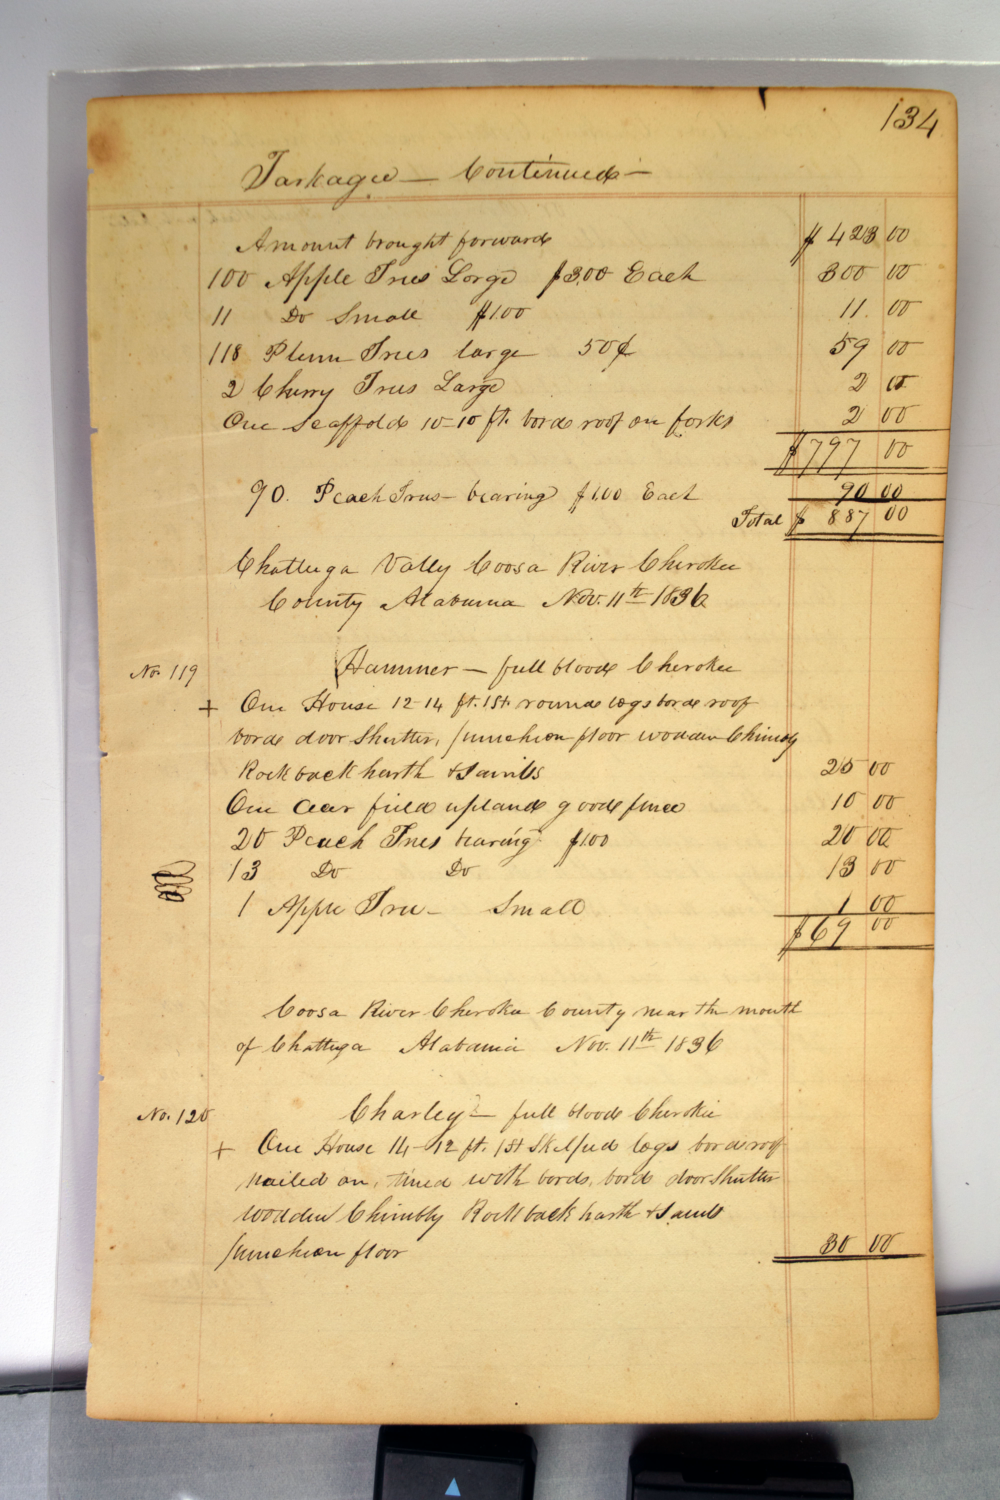 134
Taskagee — Continued —
Amount brought forward $ 423 00
100 Apple Trees Large $3.00 Each 300 00
11 Do Small $1.00 11. 00
118 Plum Trees large 50¢ 59 00
2 Cherry Trees Large 2 00
One Scaffold 10-10 ft. bord roof on forks 2 00
$797 00
90. Peach Trees - bearing $1.00 Each 90 00
Total $ 887 00
Chattuga Vally Coosa River Cherokee
County Alabama Nov. 11th 1836
No. 119 Hammer — full blood Cherokee
+ One House 12-14 ft. 1st. round logs bord roof
bord door Shutter, puncheon floor wooden Chimbly
Rock back harth & Jambs 25 00
One clear field upland good fence 10 00
20 Peach Trees bearing $1.00 20 00
13 Do Do 13 00
1 Apple Tree - Small 1 00
$69 00
Coosa River Cherokee County near the mouth
of Chattuga Alabama Nov. 11th 1836
No. 120 Charley — full blood Cherokee
+ One House 14-12 ft. 1st Skelped logs bord roof
nailed on, lined with bords, bord door Shutter
wooden Chimbly Rock back harth & Jambs
puncheon floor 30 00